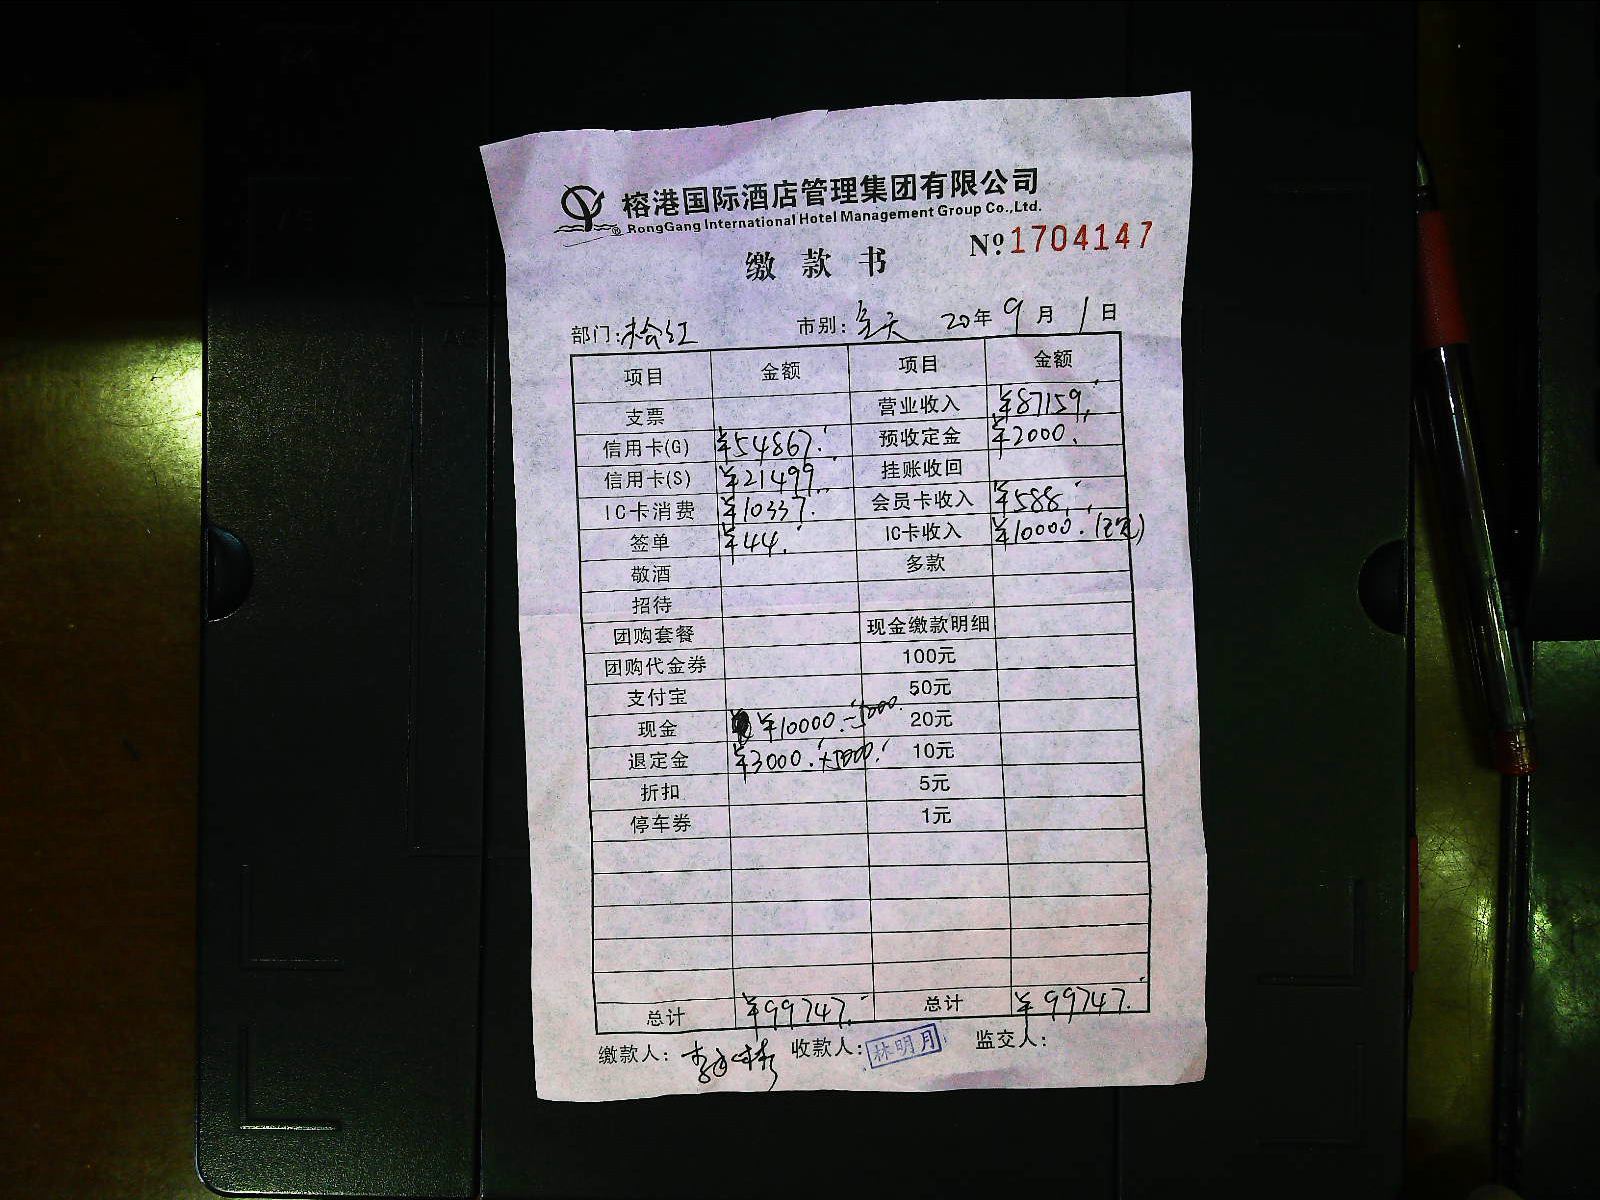 榕港国际酒店管理集团有限公司
RongGang International Hotel Management Group Co.,Ltd.
缴款书 Nº 1704147
部门: 桧红 市别: 全天 20年 9月 1日
项目 金额 项目 金额
支票 营业收入 ¥87159.
信用卡(G) ¥54867. 预收定金 ¥2000.
信用卡(S) ¥21499. 挂账收回
IC卡消费 ¥10337. 会员卡收入 ¥588.
签单 ¥44. IC卡收入 ¥10000.
敬酒 多款
招待
团购套餐 现金缴款明细
团购代金券 100元
支付宝 50元
现金 ¥10000. 20元
退定金 ¥3000. 10元
折扣 5元
停车券 1元
总计 ¥99747. 总计 ¥99747.
缴款人: 收款人: 林明月 监交人: